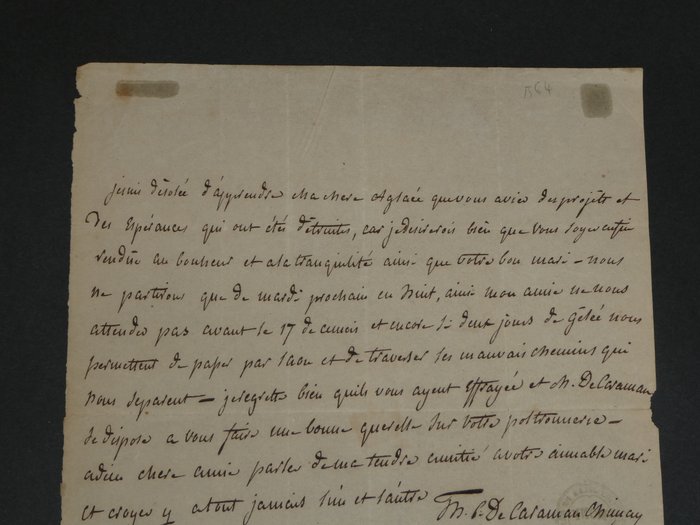 B64
je suis désolée d'apprendre ma chere Aglaée que vous aviez des projets et
des Espérances qui ont étés détruites, car je desirerois bien que vous soyez enfin
rendue au bonheur et a la tranquilité ainsi que votre bon mari – nous
ne partirons que de mardi prochain en huit, ainsi mon amie ne nous
attendez pas avant le 17 de ce mois et encore si deux jours de gelée nous
permettent de passer par laon et de traverser les mauvais chemins qui
nous separent – je regrette bien quils vous ayent effrayée et M. De Caraman
se dispose a vous faire une bonne querelle sur votre poltronnerie –
adieu chere amie parlez de ma tendre amitié a votre aimable mari
et croyez y a tout jamais l'un et l'autre
Th. P. De Caraman Chimay